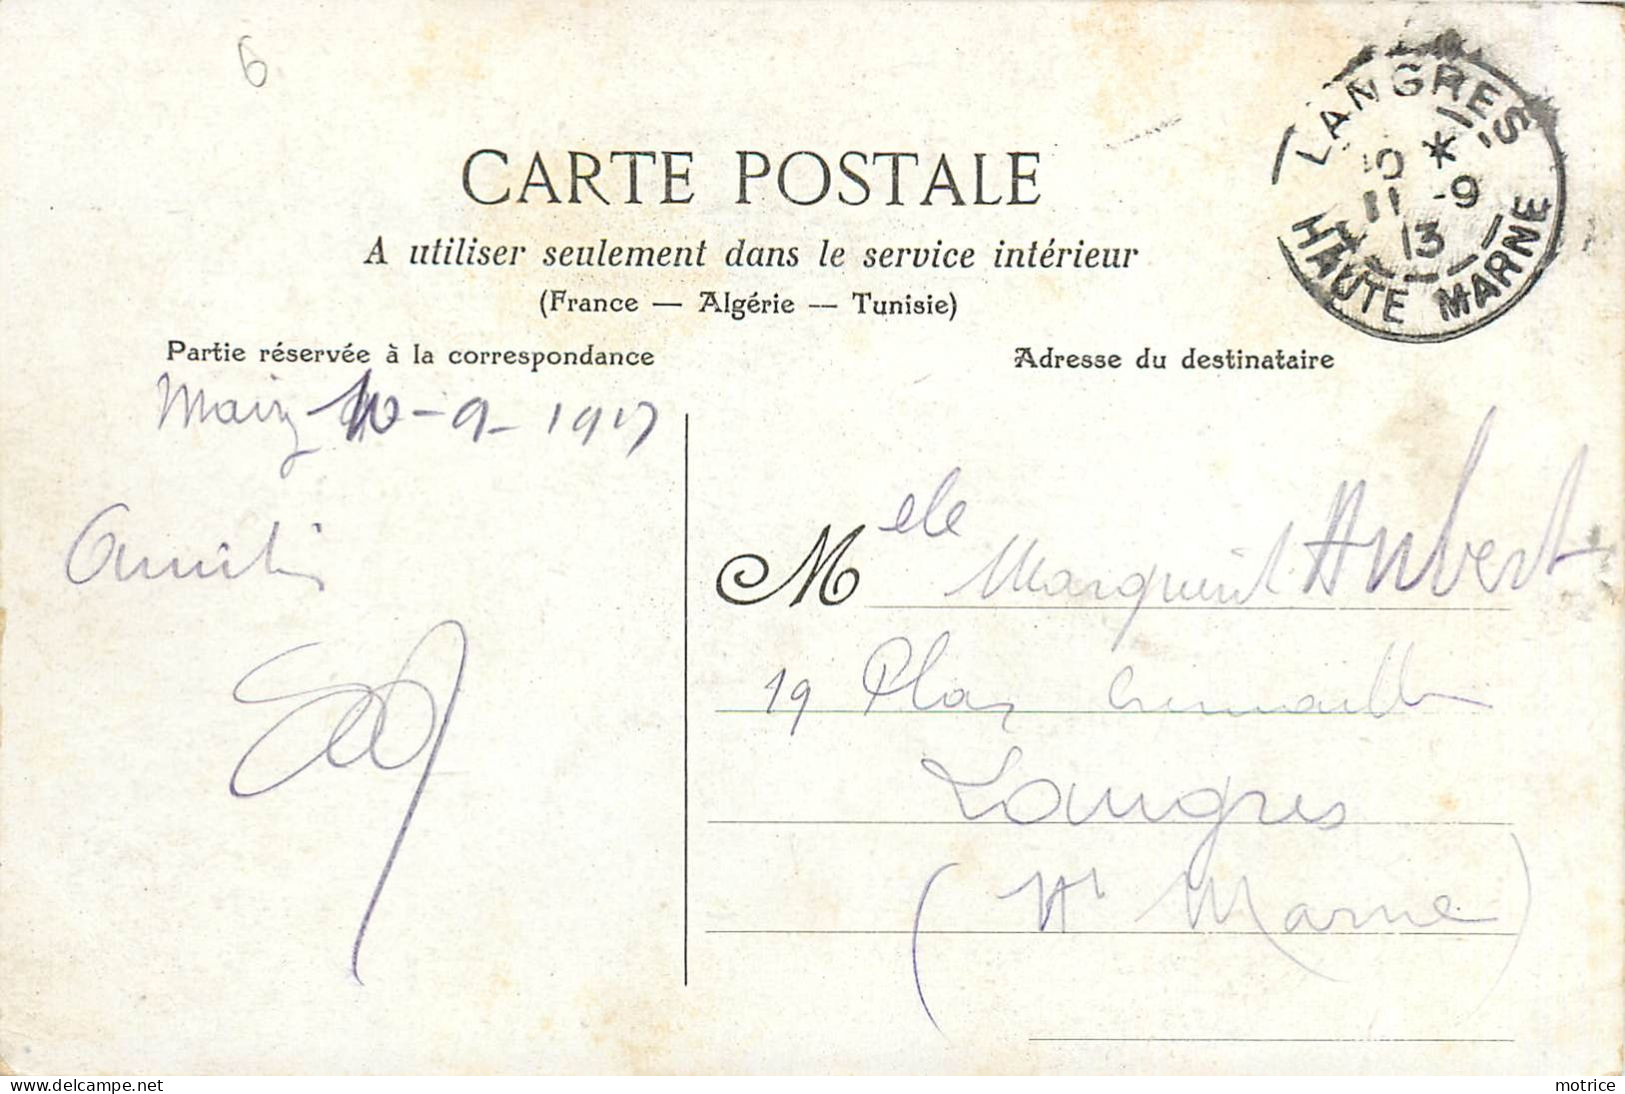 6
LANGRES
10 *
11 -9
13
HAUTE MARNE
CARTE POSTALE
A utiliser seulement dans le service intérieur
(France — Algérie — Tunisie)
Partie réservée à la correspondance
Adresse du destinataire
10-9-1913
Amitiés
Melle Marguerite Aubert
19 Place
Langres
(Hte Marne)
delcampe.net
motrice